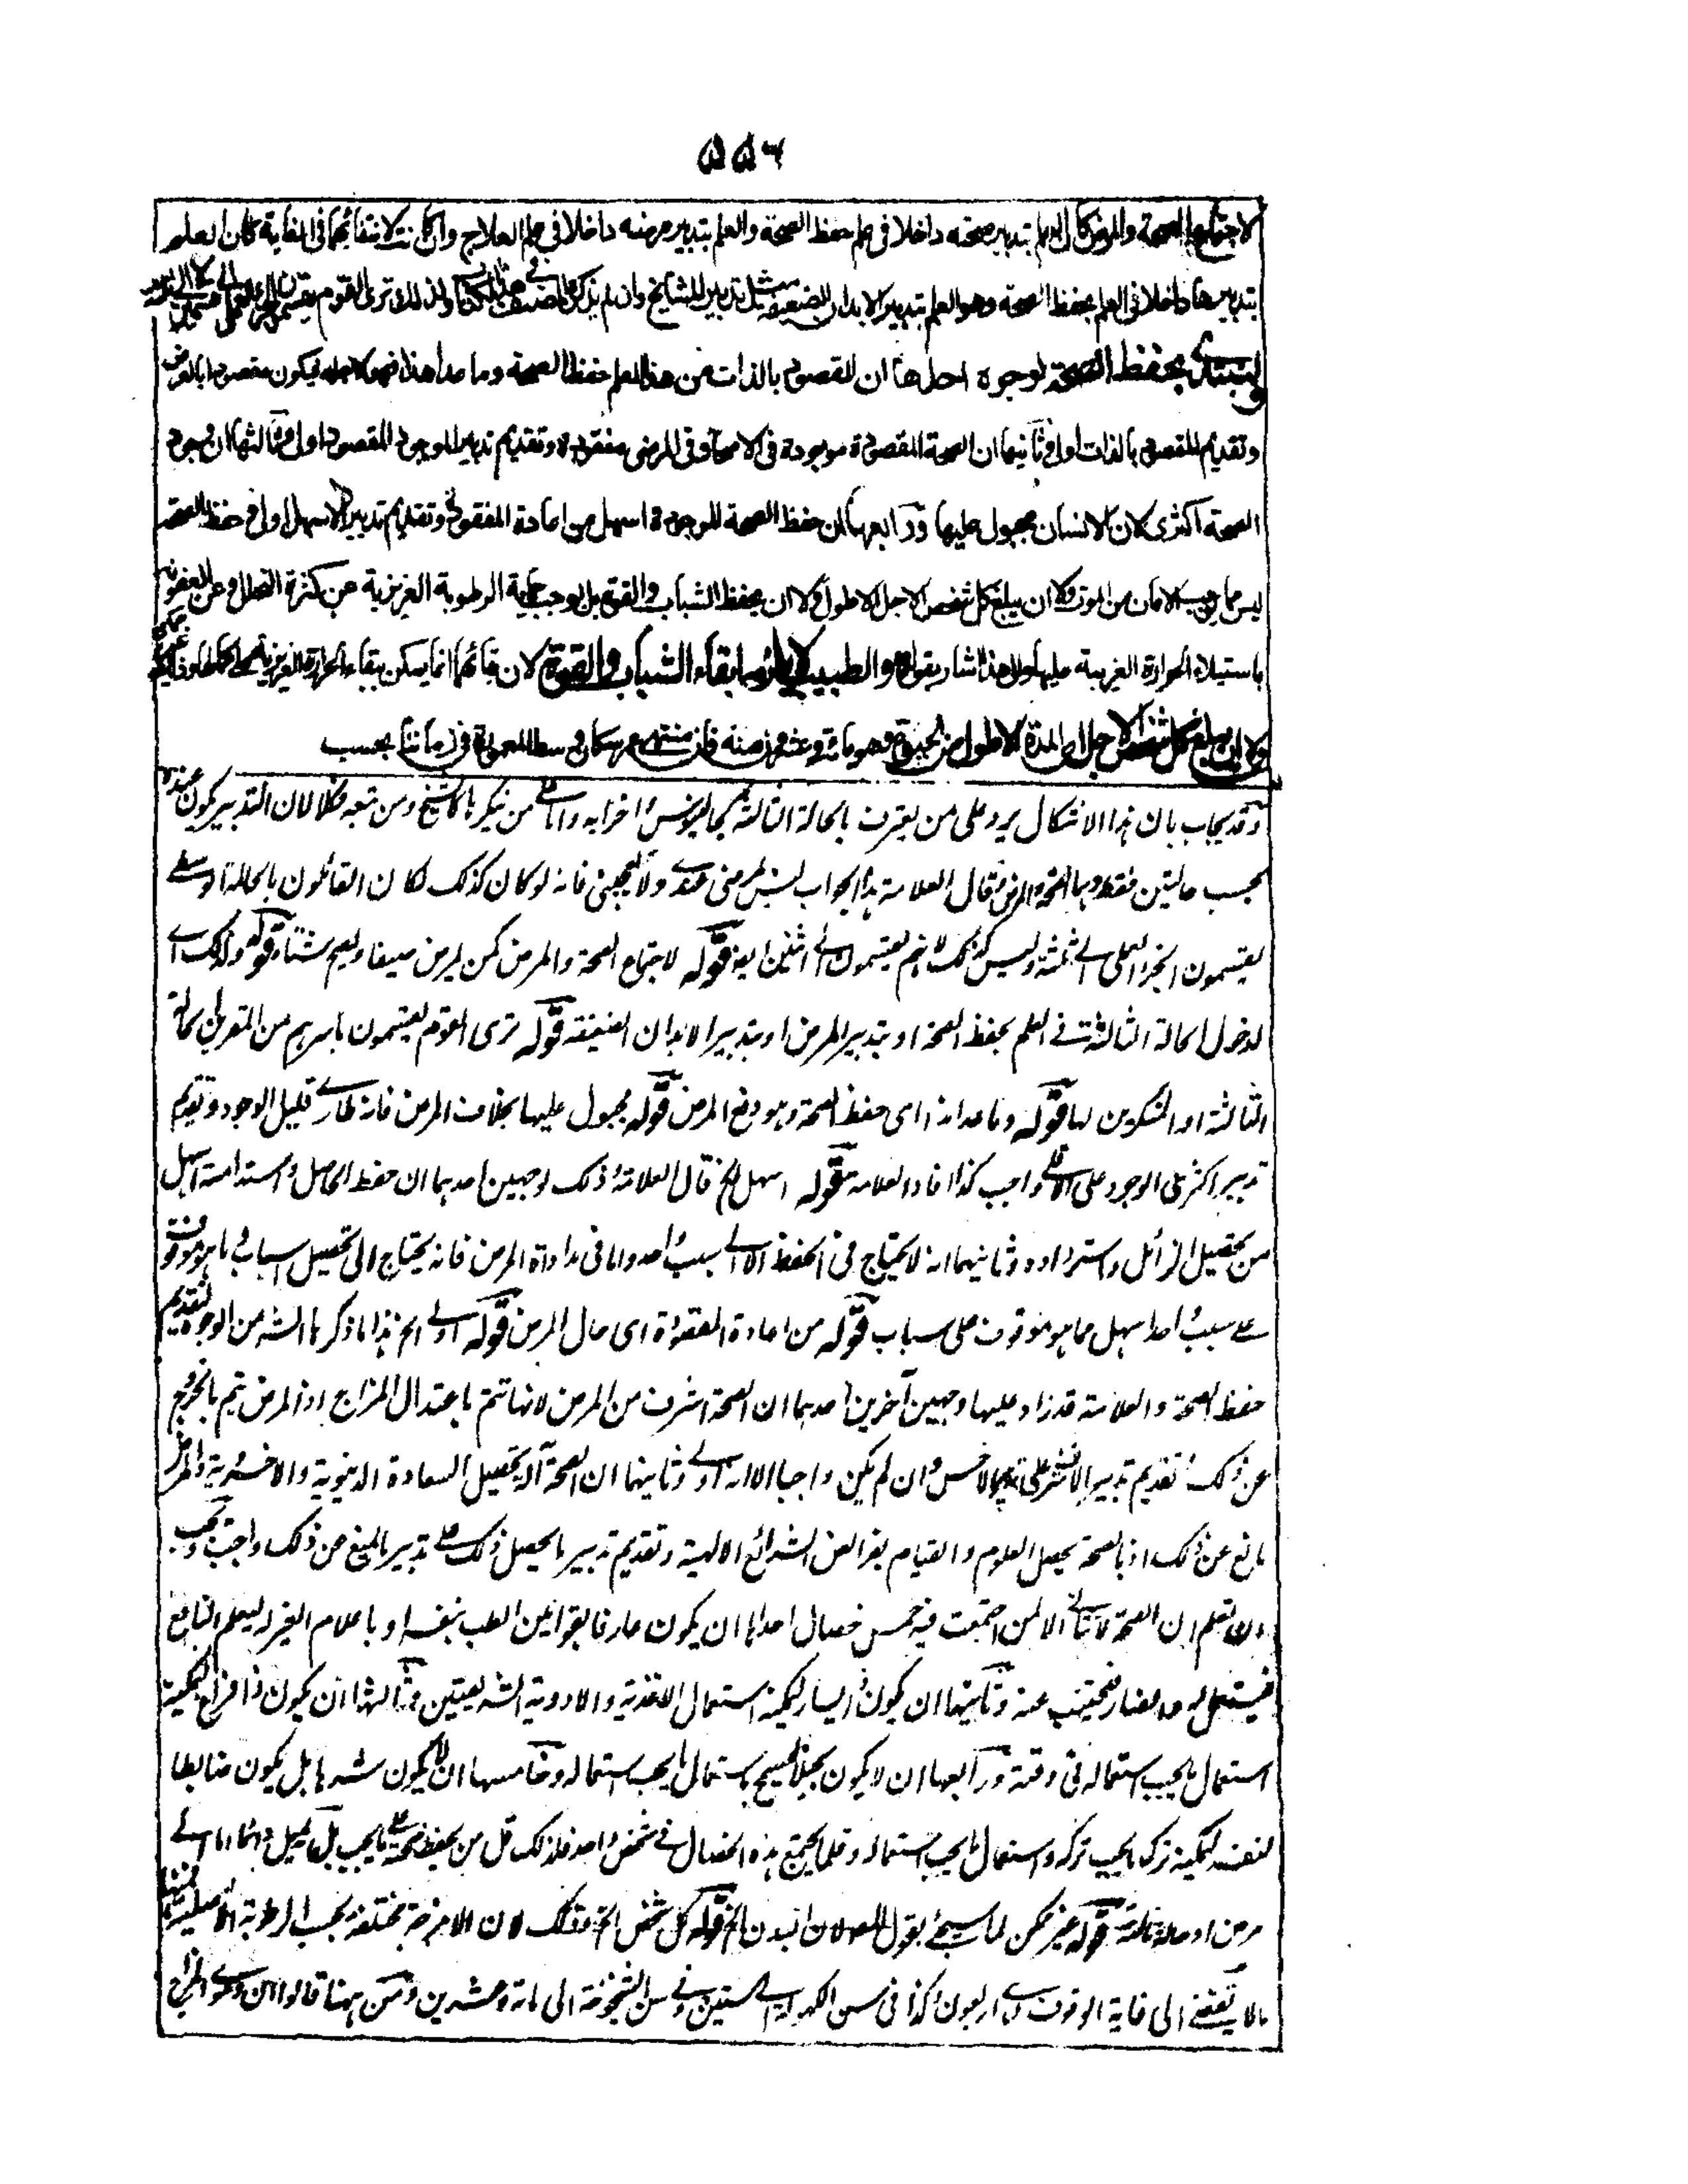 ۵۵۶
لاجتماع الصحة والمرض كان العلم بتدبير صحته داخلا في علم حفظ الصحة والعلم بتدبير مرضه داخلا في علم العلاج وان كانت لانتفائهما في الغاية كان العلم
بتدبيرها داخلا في العلم بحفظ الصحة وهو العلم بتدبير الابدان الضعيفة مثل تدبير المشايخ وان لم يذكره المصنف في هذا الكتاب ولذلك ترى القوم يقسمون
بحفظ الصحة لوجوه احدها ان المقصود بالذات من هذا العلم حفظ الصحة وما عدا هذا فهو لاجله فيكون مقصودا بالعرض
وتقديم المقصود بالذات اولى وثانيها ان الصحة المقصودة موجودة في الاصحاء وفي المرضى مفقودة وتقديم تدبير الموجود المقصود اولى وثالثها ان وجود
الصحة اكثرى لان الانسان مجبول عليها ورابعها ان حفظ الصحة الموجودة اسهل من اعادة المفقودة وتقديم تدبير الاسهل اولى وحفظ الصحة
ليس مما يوجب الامان من الموت ولا ان يبلغ كل شخص الاجل الاطول ولا ان يحفظ الشباب والقوة بل يوجب حماية الرطوبة الغريزية عن كثرة التحلل وعن العفونة
باستيلاء الحرارة الغريبة عليها والى هذا اشار بقوله والطبيب لا يلزمه ابقاء الشباب والقوة لان بقائهما انما يمكن ببقاء الحرارة الغريزية
ولا ان يبلغ كل شخص الاجل اي المدة الاطول من الحيوة وهو مائة وعشرون سنة فان منتهى عمر سكان وسط المعمورة في زماننا بحسب
وقد يجاب بان هذا الاشكال يرد على من يعترف بالحالة الثالثة كجالينوس واحزابه واما على من ينكرها كالشيخ ومن تبعه فلا لان التدبير يكون عنده
بحسب حالتين فقط وهما الصحة والمرض وقال العلامة هذا الجواب ليس بمرضي عندي ولا يعجبني فانه لو كان كذلك لكان القائلون بالحالة الوسطى
يقسمون الجزء العملي الى ثلثة وليس كذلك لانهم يقسمونه الى اثنين ايضا قوله لاجتماع الصحة والمرض كمن يمرض صيفا ويصح شتاء قوله ولذلك اي
لدخول الحالة الثالثة في العلم بحفظ الصحة او بتدبير المرض او بتدبير الابدان الضعيفة قوله ترى القوم يقسمون باسرهم من المقرين بالحالة
الثالثة او المنكرين لها قوله وما عدا هذا اى حفظ الصحة وهو دفع المرض قوله مجبول عليها بخلاف المرض فانه طارئ قليل الوجود وتقديم
تدبير اكثرى الوجود على الاقلي واجب كذا افاد العلامة قوله اسهل الخ قال العلامة وذلك لوجهين احدهما ان حفظ الحاصل واستدامته اسهل
من تحصيل الزائل واسترداده وثانيهما انه لا يحتاج في الحفظ الا الى سبب واحد واما في مداواة المرض فانه يحتاج الى تحصيل اسباب وما هو موقوف
على سبب واحد اسهل مما هو موقوف على اسباب قوله من اعادة المفقودة اى حال المرض قوله اولى الخ هذا ما ذكره الشه من الوجوه لتقديم
حفظ الصحة والعلامة قد زاد عليها وجهين آخرين احدهما ان الصحة اشرف من المرض لانها تتم باعتدال المزاج والمرض يتم بالخروج
عن ذلك وتقديم تدبير الاشرف على تدبير الاخس وان لم يكن واجبا الا انه اولى وثانيهما ان الصحة آلة تحصيل السعادة الدنيوية والاخروية والمرض
مانع عن ذلك اذ بالصحة يحصل العلوم والقيام بفرائض الشرائع الالهية وتقديم تدبير ما يحصل ذلك على تدبير ما يمنع من ذلك واجب ويجب
ان تعلم ان الصحة لا تتأتى الا لمن اجتمعت فيه خمس خصال احدها ان يكون عارفا بقوانين الطب بنفسه او باعلام الغير له ليعلم النافع
فيستعمله والضار فيجتنب عنه وثانيتها ان يكون ذا يسار ليمكنه استعمال الاغذية والادوية الشريفتين وثالثها ان يكون ذا فراغ ليمكنه
استعمال ما يجب استعماله في وقته ورابعها ان لا يكون بخيلا ليسمح باستعمال ما يجب استعماله وخامسها ان لا يكون شرها بل يكون ضابطا
لنفسه ليمكنه ترك ما يجب تركه واستعمال ما يجب استعماله وقلما يجتمع هذه الخصال في شخص واحد فلذلك قل من يحفظ صحته على ما يجب بل يميل دائما اما الى
مرض او حالة ثالثة قوله غير ممكن لما سيجئ بقول المصه لان البدن الخ قوله كل شخص الخ وذلك لان الامزجة مختلفة بحسب الرطوبة الاصلية فمنها
ما لا يقتضي الى غاية الوقوف وهي اربعون وكذا في سن الكهولة الى ستين وفي سن الشيخوخة الى مائة وعشرين ومن ههنا قالوا